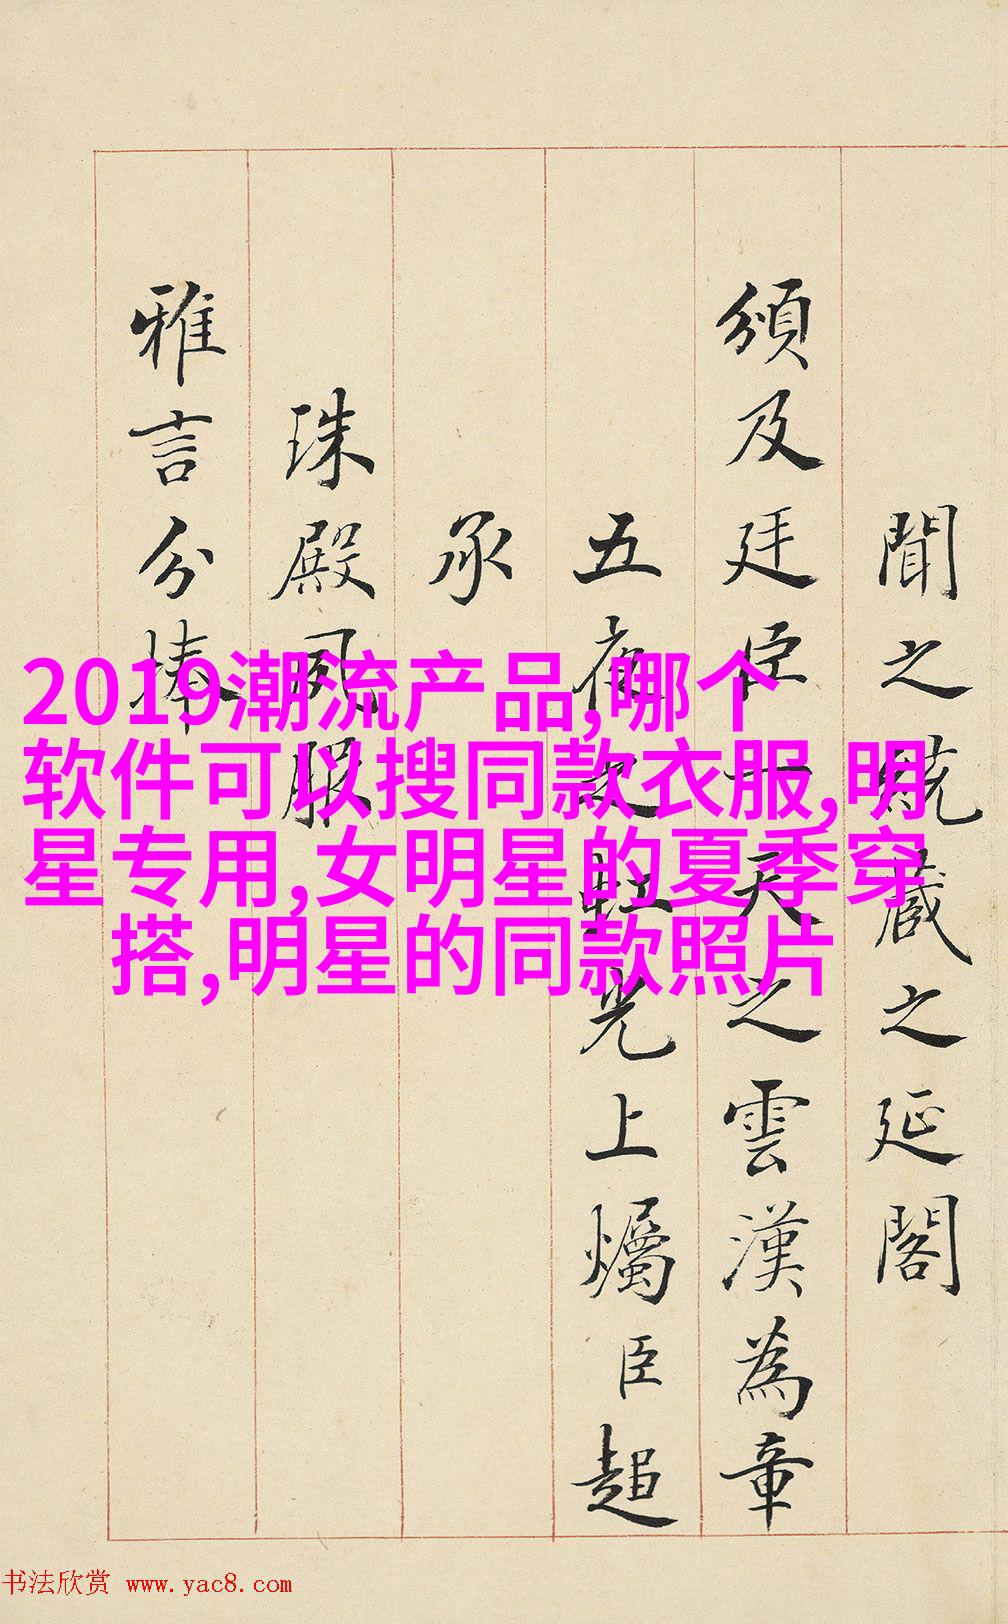 聞之兢藏之延閣
頒及廷臣一天之雲漢為章
五夜之虹光上燭臣超
承
珠殿夙服
雅言分捧
2019潮流产品,哪个
软件可以搜同款衣服,明
星专用,女明星的夏季穿
搭,明星的同款照片
书法欣赏 www.yac8.com